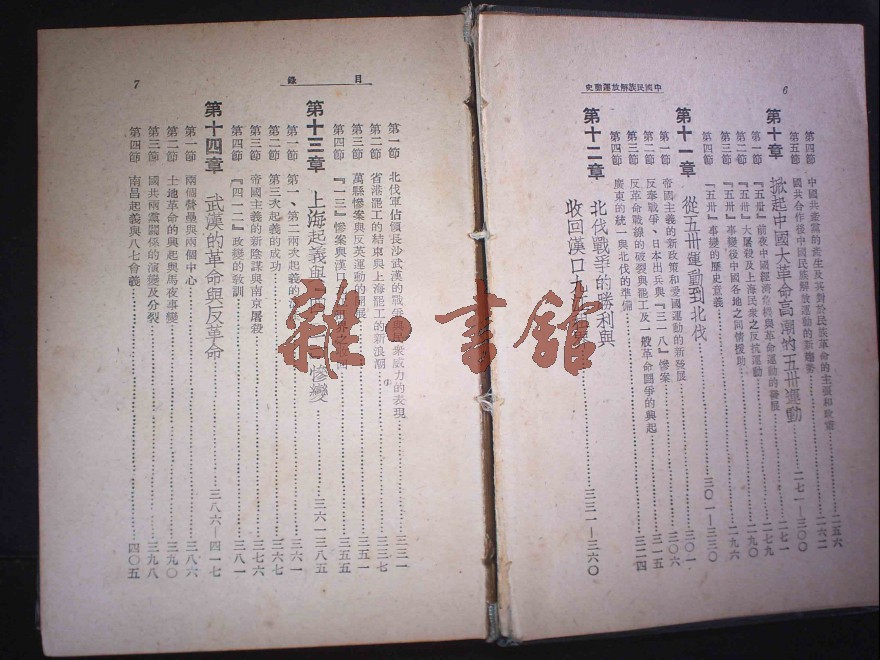 中國民族解放運動史
6
第四節 中國共產黨的產生及其對於民族革命的主張和政策 二五六
第五節 國共合作後中國民族解放運動的新趨勢 二六二
第十章 掀起中國大革命高潮的五卅運動 二七一—三〇〇
第一節 『五卅』前夜中國經濟危機與革命運動的發展 二七一
第二節 『五卅』大屠殺及上海民衆之反抗運動 二七九
第三節 『五卅』事變後中國各地之同情援助 二九〇
第四節 『五卅』事變的歷史意義 二九六
第十一章 從五卅運動到北伐 三〇一—三三〇
第一節 帝國主義的新政策和愛國運動的新發展 三〇一
第二節 反奉戰爭、日本出兵與『三一八』慘案 三〇六
第三節 反革命戰線的破裂與罷工及一般革命鬪爭的興起 三一五
第四節 廣東的統一與北伐的準備 三二四
第十二章 北伐戰爭的勝利與
收回漢口九 三三一—三六〇
目錄
7
第一節 北伐軍佔領長沙武漢的戰爭與民衆威力的表現 三三一
第二節 省港罷工的結束與上海罷工的新浪潮 三三七
第三節 萬縣慘案與反英運動的開展 三五一
第四節 『一三』慘案與漢口 三五五
第十三章 上海起義與 慘變 三六一—三八五
第一節 第一、第二兩次起義的 三六一
第二節 第三次起義的成功 三六七
第三節 帝國主義的新陰謀與南京屠殺 三七六
第四節 『四一二』政變的教訓 三八一
第十四章 武漢的革命與反革命 三八六—四一七
第一節 兩個營壘與兩個中心 三八六
第二節 土地革命的興起與馬夜事變 三九〇
第三節 國共兩黨關係的演變及分裂 三九八
第四節 南昌起義與八七會議 四〇五
雜·書館